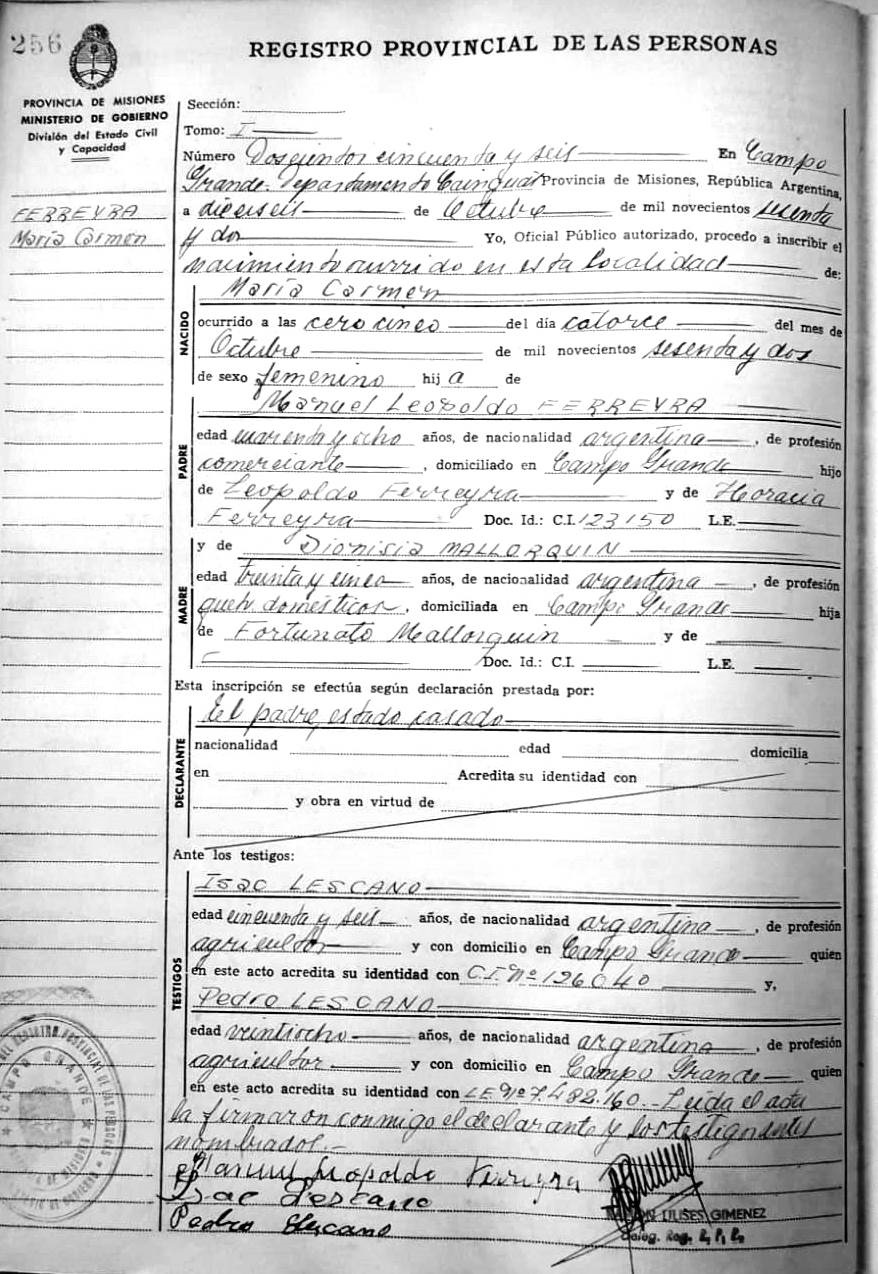 256
REGISTRO PROVINCIAL DE LAS PERSONAS
PROVINCIA DE MISIONES
MINISTERIO DE GOBIERNO
División del Estado Civil
y Capacidad
FERREYRA
María Carmen
Sección:
Tomo: I
Número Doscientos cincuenta y seis En Campo
Grande. Departamento Cainguas Provincia de Misiones, República Argentina,
a dieciseis de Octubre de mil novecientos sesenta
y dos Yo, Oficial Público autorizado, procedo a inscribir el
nacimiento ocurrido en esta localidad de:
NACIDO
María Carmen
ocurrido a las cero cinco del día catorce del mes de
Octubre de mil novecientos sesenta y dos
de sexo femenino hij a de
PADRE
Manuel Leopoldo FERREYRA
edad cuarenta y ocho años, de nacionalidad argentina, de profesión
comerciante, domiciliado en Campo Grande hijo
de Leopoldo Ferreyra y de Horacia
Ferreyra Doc. Id.: C.I. 123150 L.E.
MADRE
y de Dionisia MALLORQUIN
edad treinta y cinco años, de nacionalidad argentina, de profesión
queh. domésticos, domiciliada en Campo Grande hija
de Fortunato Mallorquin y de
Doc. Id.: C.I. L.E.
Esta inscripción se efectúa según declaración prestada por:
DECLARANTE
El padre, estado casado
nacionalidad edad domicilia
en Acredita su identidad con
y obra en virtud de
Ante los testigos:
TESTIGOS
Isac LESCANO
edad cincuenta y seis años, de nacionalidad argentina, de profesión
agricultor y con domicilio en Campo Grande quien
en este acto acredita su identidad con C.I. Nº 126040 y,
Pedro LESCANO
edad veintiocho años, de nacionalidad argentina, de profesión
agricultor y con domicilio en Campo Grande quien
en este acto acredita su identidad con L.E. Nº 7.482.160. Leída el acta
la firmaron conmigo el declarante y los testigos antes
nombrados.-
Manuel Leopoldo Ferreyra
Isac Lescano
Pedro Lescano
ULISES GIMENEZ
Deleg. Reg. P. P.
CAMPO GRANDE